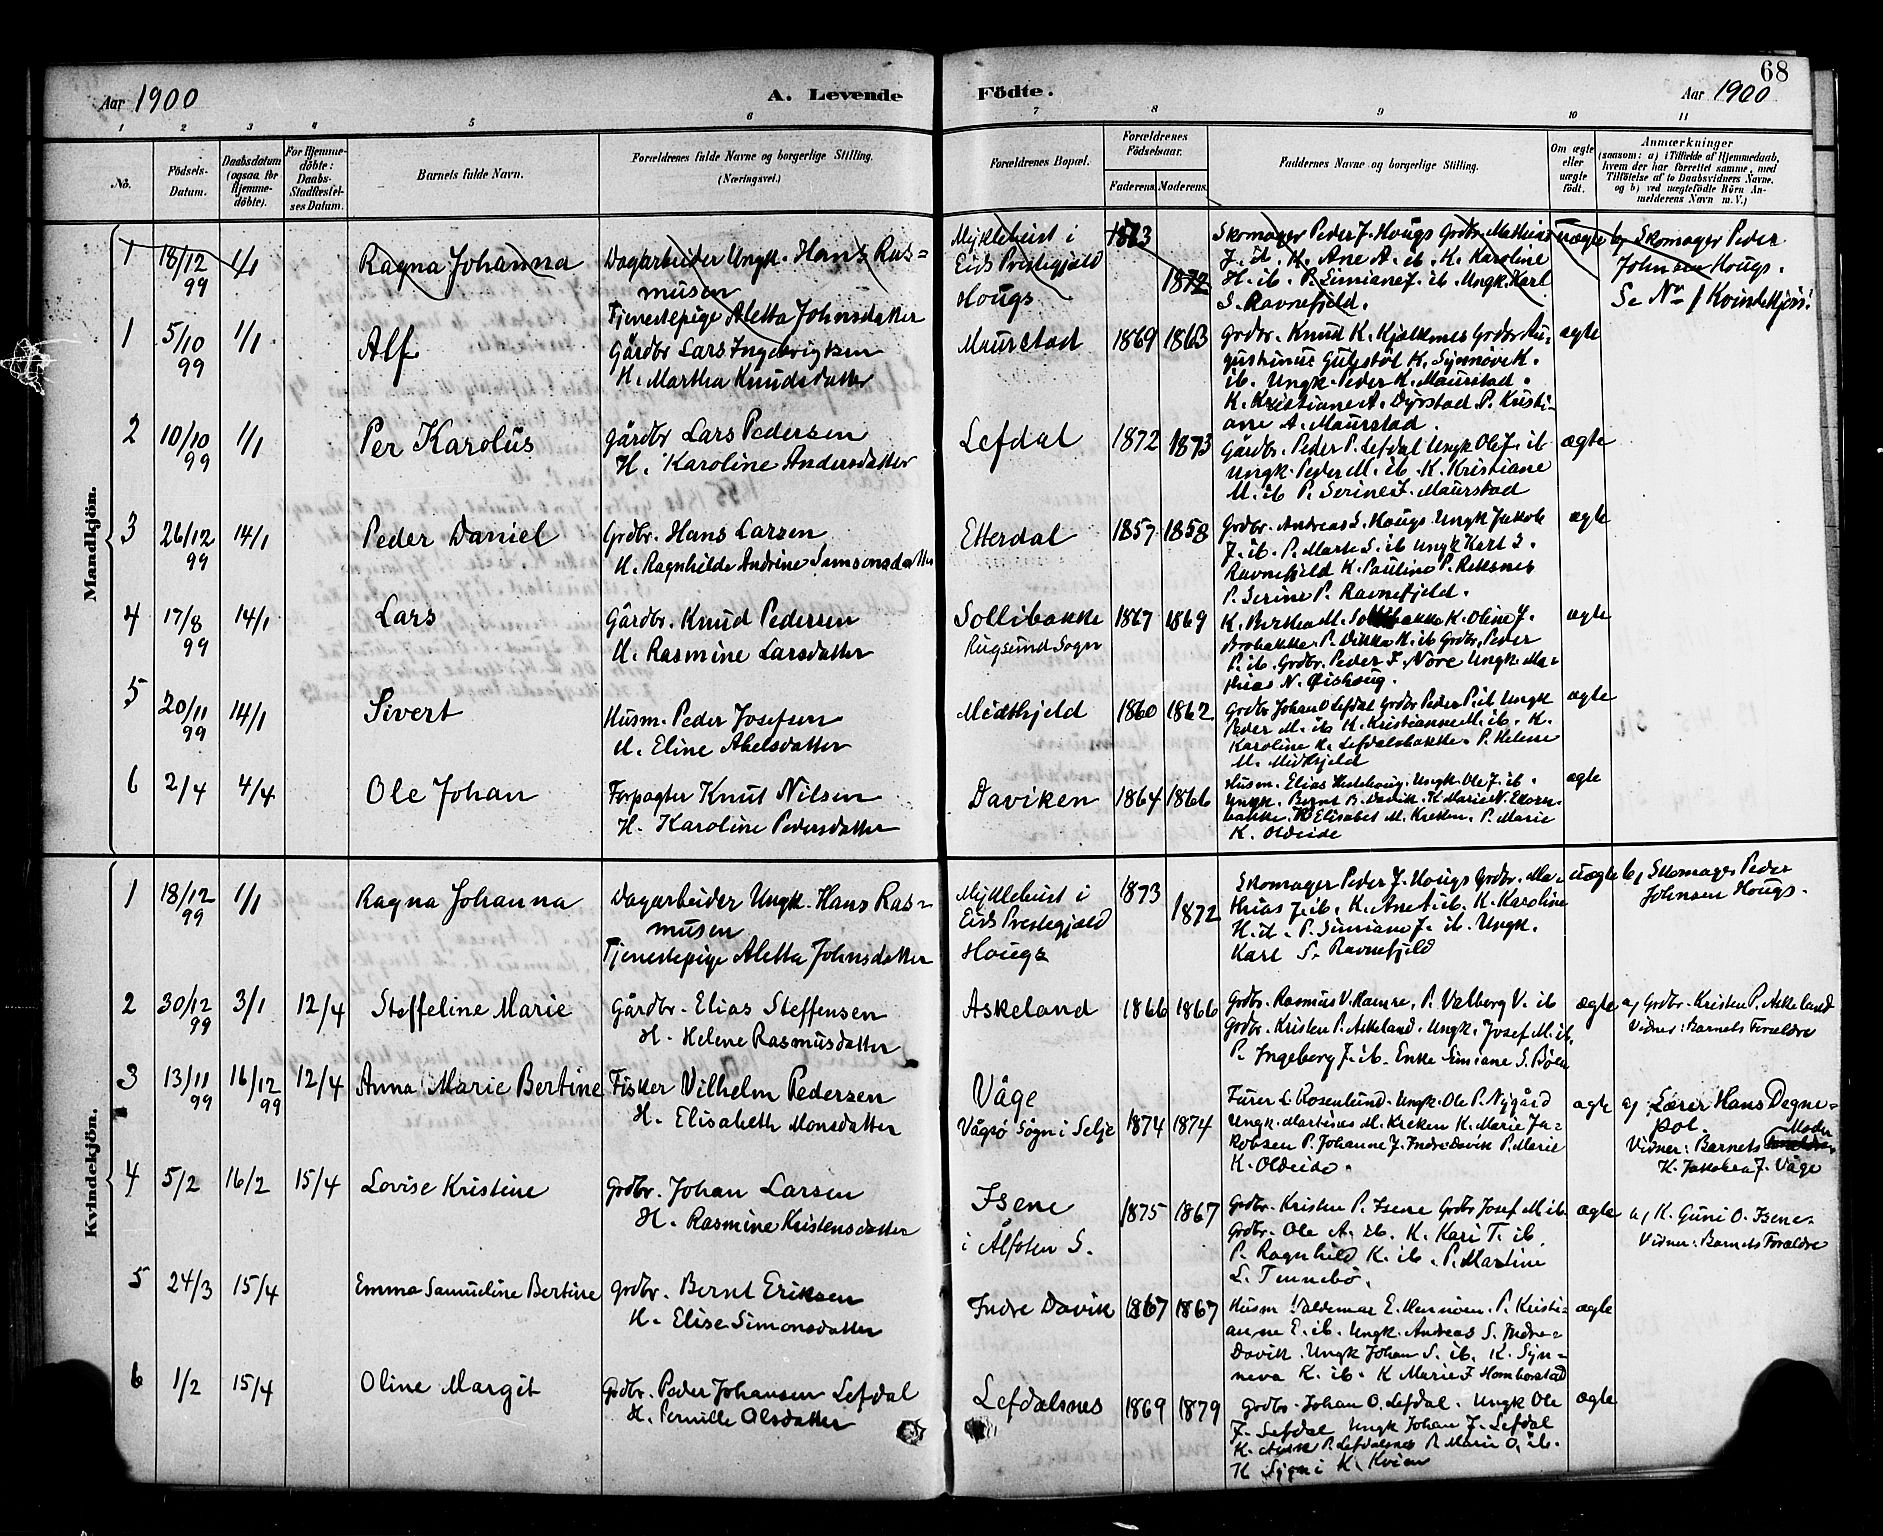 68
Aar 1900 A. Levende Födte. Aar 1900
1 2 3 4 5 6 7 8 9 10 11
No.
Födsels-
Datum.
Daabsdatum
(ogsaa for
Hjemme-
döbte).
For Hjemme-
döbte:
Daabs-
Stadfæstel-
ses Datum.
Barnets fulde Navn.
Forældrenes fulde Navne og borgerlige Stilling.
(Næringsvei.)
Forældrenes Bopæl.
Forældrenes
Födselsaar.
Faderens. Moderens.
Faddernes Navne og borgerlige Stilling.
Om ægte
eller
uægte
født.
Anmærkninger
(saasom: a) i Tilfælde af Hjemmedaab,
hvem der har forrettet samme, med
Tilföielse af to Daabsvidners Navne,
og b) ved uægtefödte Börn An-
melderens Navn m. V.)
Mandkjön.
1 18/12 99 1/1 Ragna Johanna
Dagarbeider Ungk. Hans Ras=
musen
Tjenestepige Aletta Johnsdatter
Myklebust i
Eids Prestegjæld
Hougs
1873 1872
Skomager Peder J. Hougs Grdbr. Mathias
J. ib. K. Ane A. ib. K. Karoline
H. ib. P. Simiane J. ib. Ungk. Karl
S. Ravnefjeld.
uægte
b, Skomager Peder
Johnsen Hougs.
Se No 1 Kvindekjön!
1 5/10 99 1/1 Alf
Gårdbr Lars Ingebrigtsen
H. Martha Knudsdatter
Maurstad 1869 1863
Grdbr. Knud K. Kjølknes Grdbr Au-
gustinus Gulestøl K. Synnøve K.
ib. Ungk. Peder K. Maurstad.
K. Kristiane A. Dyrstad P. Kristi-
ane A. Maurstad.
ægte
2 10/10 99 1/1 Per Karolus
Gårdbr Lars Pedersen
H. Karoline Andersdatter
Lefdal 1872 1873
Gårdbr. Peder P. Lefdal Ungk Ole J. ib
Ungk. Peder M. ib. K. Kristiane
M. ib P. Serine J. Maurstad
ægte
3 26/12 99 14/1 Peder Daniel
Grdbr. Hans Larsen
H. Ragnhilde Andrine Samsonsdatter
Etterdal 1857 1858
Grdbr. Andreas S. Hougs Ungk Jakob
J. ib. P. Marte S. ib Ungk Karl S.
Ravnefjeld K. Pauline P. Reksnes
P. Serine P. Ravnefjeld.
ægte
4 17/8 99 14/1 Lars
Gårdbr. Knud Pedersen
H. Rasmine Larsdatter
Sollibakke
Rugsund Sogn
1867 1869
K. Berthea M. Sollibakke K. Oline J.
P. Dikka K. ib Grdbr. Peder
P. ib. Grdbr. Peder F. Nore Ungk. Ma=
thias N. Øishoug.
ægte
5 20/11 99 14/1 Sivert
Husm. Peder Josefsen
H. Eline Abelsdatter
Midthjeld 1860 1862
Grdbr Johan O Lefdal Grdbr Peder P. ib Ungk
Peder M. ib K. Kristianne M. ib. K.
Karoline K. Lefdalsbakke. P. Helene
M. Midthjeld
ægte
6 2/4 4/4 Ole Johan
Forpagter Knut Nilsen
H. Karoline Pedersdatter
Daviken 1864 1866
Husm. Elias Ungk. Ole J. ib.
Ungk. Bernt B. Davik. K Marie N.
bakke. K Elisabet M. Kreken. P. Marie
K. Oldeide
ægte
Kvindekjön.
1 18/12 99 1/1 Ragna Johanna
Dagarbeider Ungk. Hans Ras=
musen
Tjenestepige Aletta Johnsdatter
Myklebust i
Eids Prestegjæld
Hougs
1873 1872
Skomager Peder J. Hougs Grdbr. Ma=
thias J. ib. K. Ane A. ib. K. Karoline
H. ib. P. Simiane J. ib. Ungk.
Karl S. Ravnefjeld
uægte
b, Skomager Peder
Johnsen Hougs.
2 30/12 99 3/1 12/4 Steffeline Marie
Gårdbr. Elias Steffensen
H. Helene Rasmusdatter
Askeland 1866 1866
Grdbr. Rasmus V. Hamre, P. Valborg V. ib
Grdbr. Kristen P. Askeland. Ungk. Josef M. ib.
P. Ingeborg J. ib. Enke Simiane S. Bölen
ægte
a, Grdbr. Kristen P. Askeland
Vidner: Barnets Forældre
3 13/11 99 16/12 99 12/4 Anna Marie Bertine
Fisker Vilhelm Pedersen
H. Elisabeth Monsdatter
Våge
Vågsö Sogn i Selje
1874 1874
Furer L. Rosenlund. Ungk. Ole P. Nygård
Ungk. Martines M. Kreken K. Marie Ja-
kobsen P. Johanne J. Indre Davik P. Marie
K. Oldeide.
ægte
a, Lærer Hans Degne=
pol.
Vidner: Barnets Moder
K. Jakobea J. Våge
4 5/2 16/2 15/4 Lovise Kristine
Grdbr. Johan Larsen
H. Rasmine Kristensdatter
Isene
i Ålfoten S.
1875 1867
Grdbr. Kristen P. Isene Grdbr Josef M. ib
Grdbr. Ole A. ib. K. Kari T. ib.
P. Ragnhild K. ib. P. Martine
L. Tennebö.
ægte
a, K. Guni O. Isene.
Vidner: Barnets Forældre
5 24/3 15/4 Emma Samueline Bertine
Grdbr. Bernt Eriksen
H. Elise Simonsdatter
Indre Davik 1867 1867
Husm Valdemar E. Hennöen. P. Kristi=
anne E. ib. Ungk. Andreas S. Indre=
Davik. Ungk Johan S. ib. K. Syn=
neva K. ib. K Marie J Homborstad
ægte
6 1/2 15/4 Oline Margit
Grdbr. Peder Johansen Lefdal
H. Pernille Olsdatter
Lefdalsnes 1869 1879
Grdbr. Johan O. Lefdal. Ungk Ole
J. Lefdal Ungk Johan J. Lefdal
K. P. Lefdalsnes P. Marie O. ib.
K Signi K. Kvien
ægte